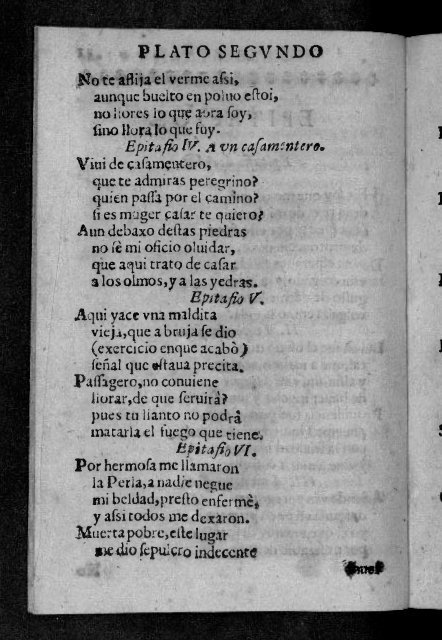 PLATO SEGVNDO
No te aflija el verme assi,
aunque buelto en poluo estoi,
no llores lo que aora soy,
sino llora lo que fuy.
Epitafio IV. A vn casamentero.
Viui de casamentero,
que te admiras peregrino?
quien passa por el camino?
si es muger casar te quiero?
Aun debaxo destas piedras
no sè mi oficio oluidar,
que aqui trato de casar
a los olmos, y a las yedras.
Epitafio V.
Aqui yace vna maldita
vieja, que a bruja se dio
(exercicio enque acabò)
señal que estaua precita.
Passagero, no conuiene
llorar, de que seruirà?
pues tu llanto no podrà
matarla el fuego que tiene.
Epitafio VI.
Por hermosa me llamaron
la Perla, a nadie negue
mi beldad, presto enfermè,
y assi todos me dexaron.
Muerta pobre, este lugar
me dio sepulcro indecente